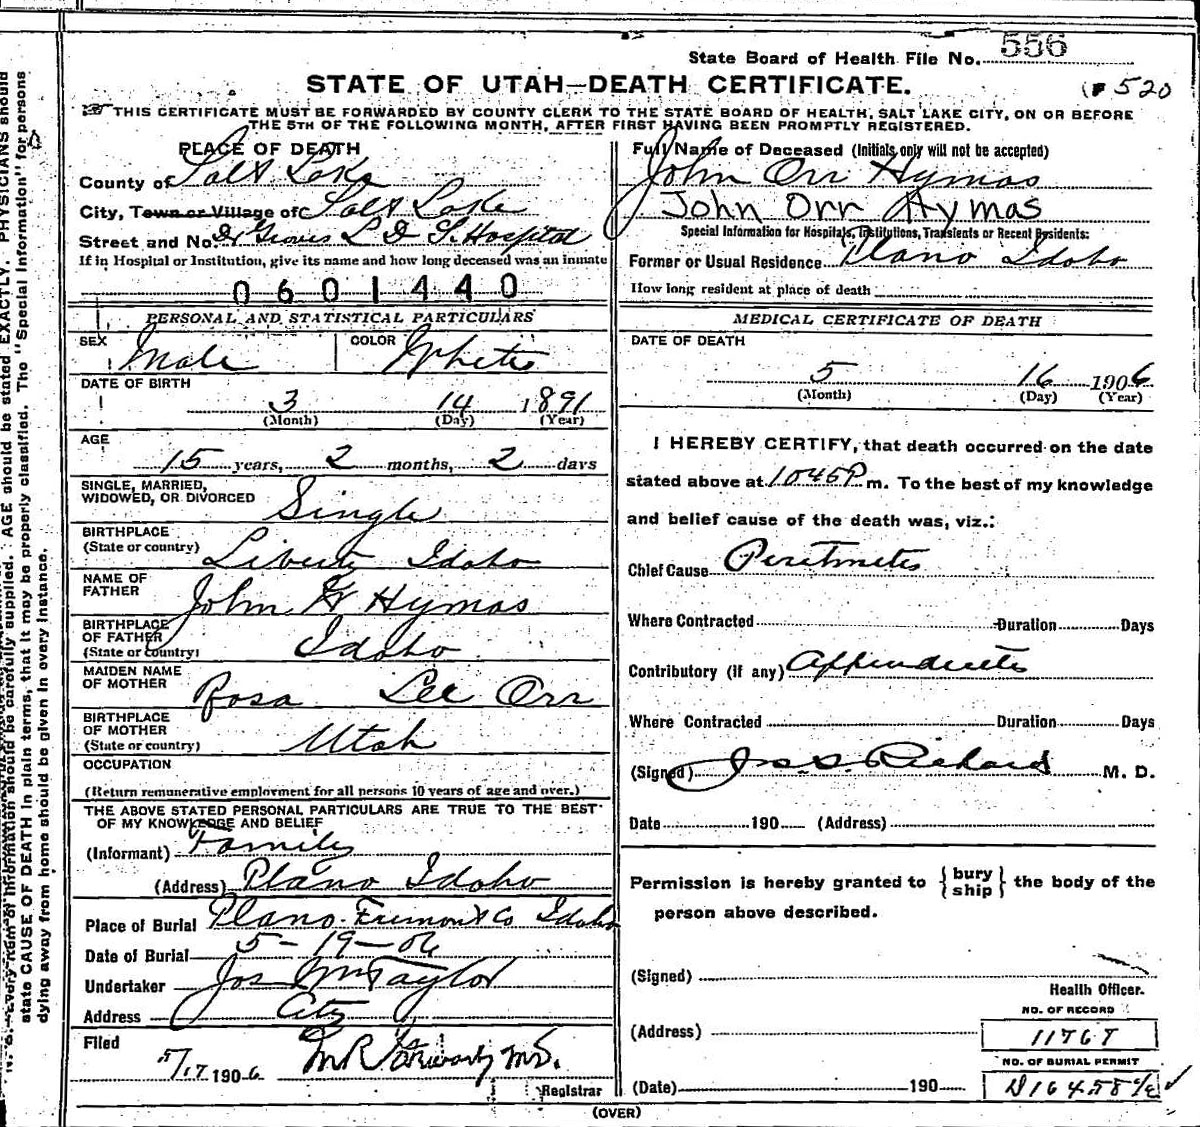 State Board of Health File No. 556
STATE OF UTAH—DEATH CERTIFICATE.
520
THIS CERTIFICATE MUST BE FORWARDED BY COUNTY CLERK TO THE STATE BOARD OF HEALTH, SALT LAKE CITY, ON OR BEFORE
THE 5TH OF THE FOLLOWING MONTH, AFTER FIRST HAVING BEEN PROMPTLY REGISTERED.
PLACE OF DEATH
County of Salt Lake
City, Town or Village of Salt Lake
Street and No. Dr Groves L D S. Hospital
If in Hospital or Institution, give its name and how long deceased was an inmate
0601440
PERSONAL AND STATISTICAL PARTICULARS
SEX Male COLOR White
DATE OF BIRTH
3 14 1891
(Month) (Day) (Year)
AGE
15 years, 2 months, 2 days
SINGLE, MARRIED,
WIDOWED, OR DIVORCED Single
BIRTHPLACE
(State or country) Liberty Idaho
NAME OF
FATHER John W Hymas
BIRTHPLACE
OF FATHER
(State or country) Idaho
MAIDEN NAME
OF MOTHER Rosa Lee Orr
BIRTHPLACE
OF MOTHER
(State or country) Utah
OCCUPATION
(Return remunerative employment for all persons 10 years of age and over.)
THE ABOVE STATED PERSONAL PARTICULARS ARE TRUE TO THE BEST
OF MY KNOWLEDGE AND BELIEF
(Informant) Family
(Address) Plano Idaho
Place of Burial Plano. Fremont Co Idaho
Date of Burial 5-19-06
Undertaker Jos Wm Taylor
Address City
Filed
5/17 1906 M.D.
Registrar
Full Name of Deceased (Initials only will not be accepted)
John Orr Hymas
John Orr Hymas
Special Information for Hospitals, Institutions, Transients or Recent Residents:
Former or Usual Residence Plano Idaho
How long resident at place of death
MEDICAL CERTIFICATE OF DEATH
DATE OF DEATH
5 16 1906
(Month) (Day) (Year)
I HEREBY CERTIFY, that death occurred on the date
stated above at 1045P m. To the best of my knowledge
and belief cause of the death was, viz.:
Chief Cause Peritinetes
Where Contracted Duration Days
Contributory (if any) Appendicetes
Where Contracted Duration Days
(Signed) Jos. S. Richards M. D.
Date 190 (Address)
Permission is hereby granted to { bury ship } the body of the
person above described.
(Signed)
Health Officer.
NO. OF RECORD
(Address) 11767
NO. OF BURIAL PERMIT
(Date) 190 D16458
(OVER)
AGE should be stated EXACTLY. PHYSICIANS should
state CAUSE OF DEATH in plain terms, that it may be properly classified. The "Special Information" for persons
dying away from home should be given in every instance.